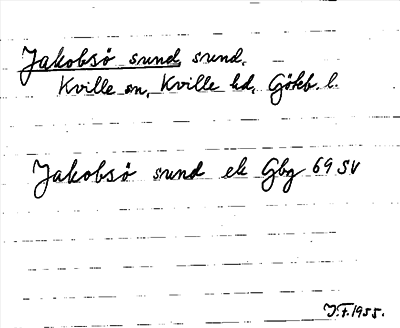 Jakobsö sund sund.
Kville sn, Kville hd, Göteb. l.
Jakobsö sund ek Gbg 69 SV
J.F. 1955.